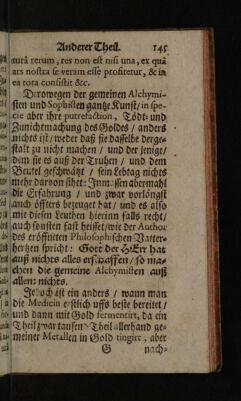 Anderer Theil. 145
turâ rerum, res non est nisi una, ex quâ
ars nostra se veram esse profitetur, & in
ea tota consistit &c.
Derowegen der gemeinen Alchymi-
sten und Sophisten gantze Kunst/ in spe-
cie aber ihre putrefaction, Tödt- und
Zunichtmachung des Goldes / anders
nichts ist / weder daß sie dasselbe derge-
stalt zu nicht machen / und der jenige/
dem sie es auß der Truhen / und dem
Beutel geschwätzt / sein Lebtag nichts
mehr darvon sihet: Inmassen abermahl
die Erfahrung / und zwar vorlöngst
auch öffters bezeuget hat / und es also
mit diesen Leuthen hierinn falls recht/
auch sonsten fast heisset/ wie der Author
des eröffneten Philosophischen Vatter-
hertzen spricht: Gott der HErr hat
auß nichts alles erschaffen / so ma-
chen die gemeine Alchymisten auß
allem nichts.
Jedoch ist ein anders / wann man
die Medicin erstlich uffs beste bereitet /
und dann mit Gold fermentirt, da ein
Theil zwar tausend Theil allerhand ge-
meiner Metallen in Gold tingirt, aber
G nach-